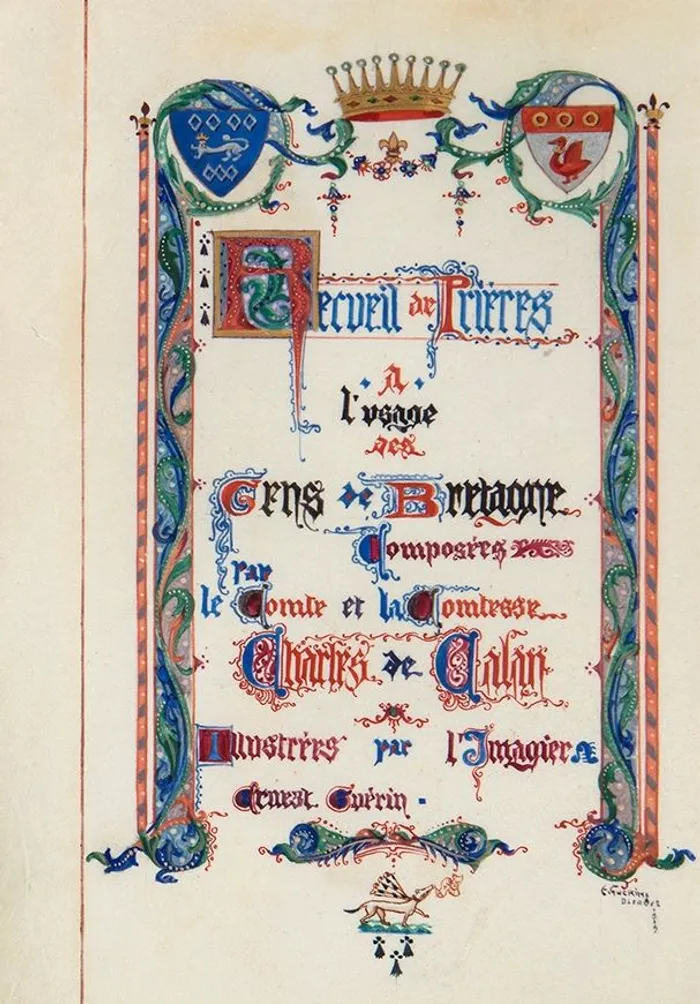 Recueil de Prières
A
l'usage
des
Gens de Bretagne
Composées
par
le Comte et la Comtesse
Charles de Calan
Illustrées par l'Imagier
Ernest Guérin
E. Guérin